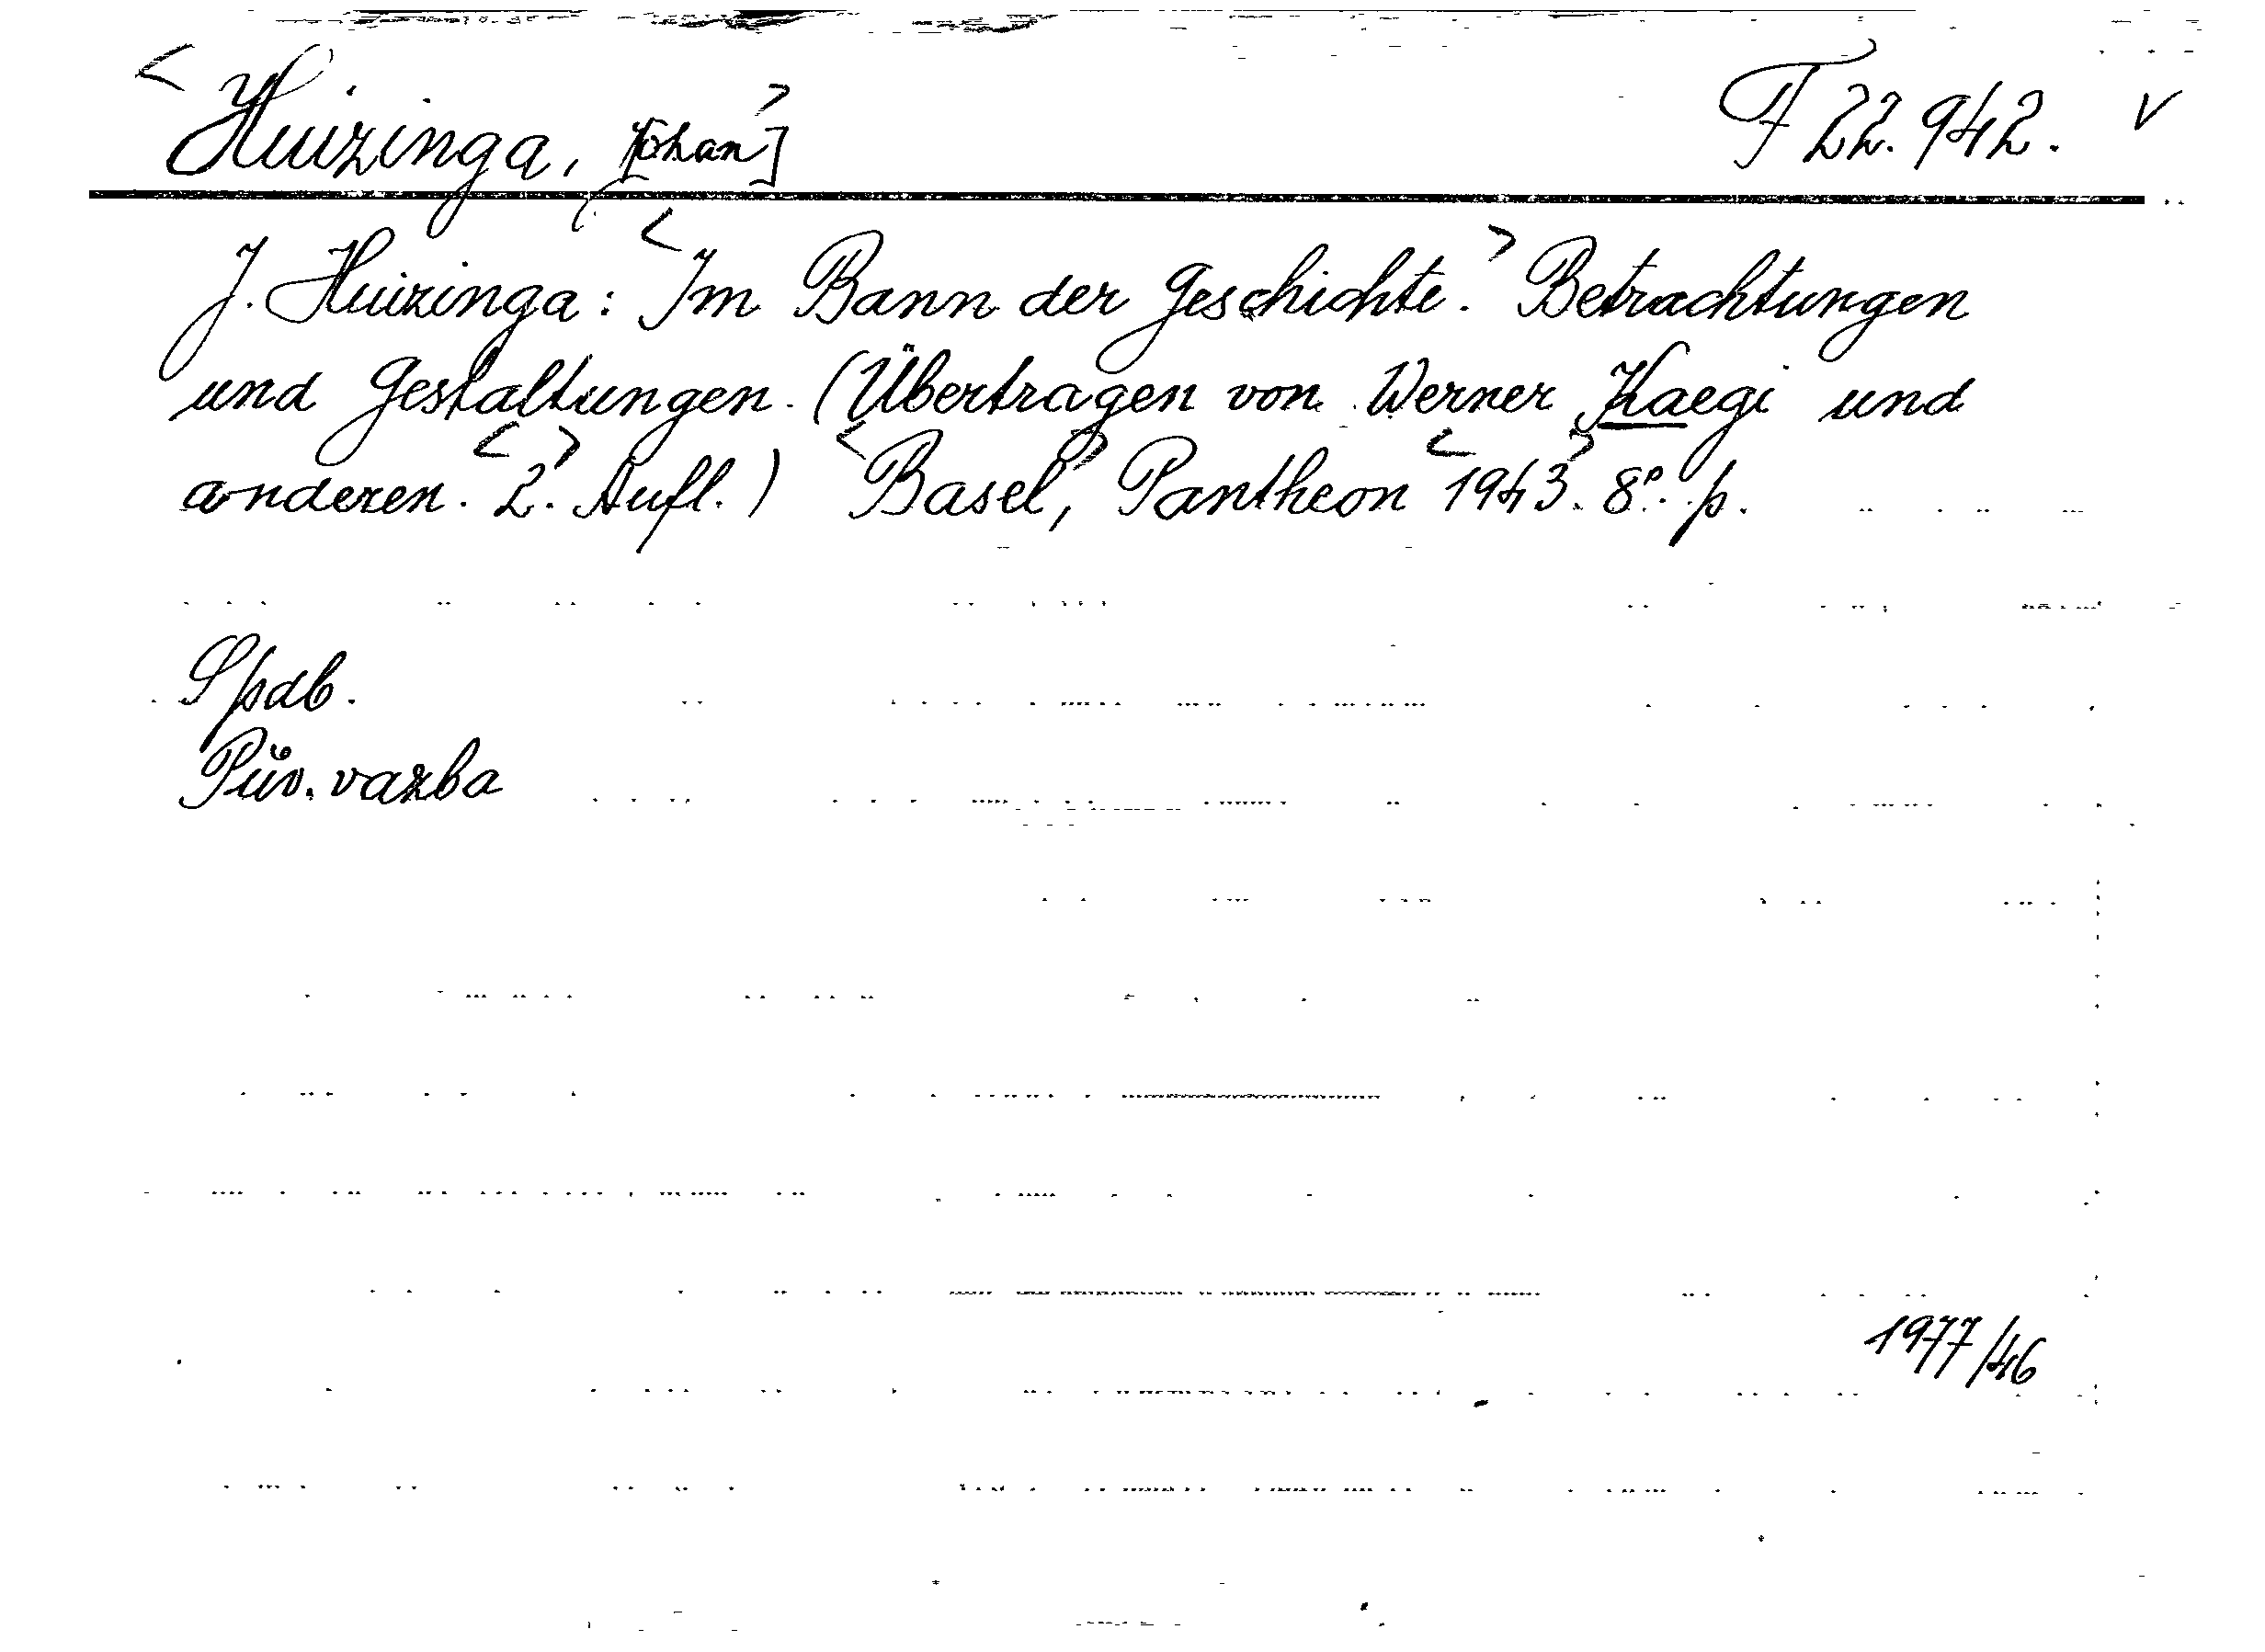 <Huizinga, [Johan>] F 22.942. v
J. Huizinga: <Im Bann der Geschichte.> Betrachtungen
und Gestaltungen. (Übertragen von Werner Kaegi und
anderen. <2.> Aufl.) <Basel,> Pantheon <1943>. 8°. p.
Spdb.
Pův. vazba
1977/46